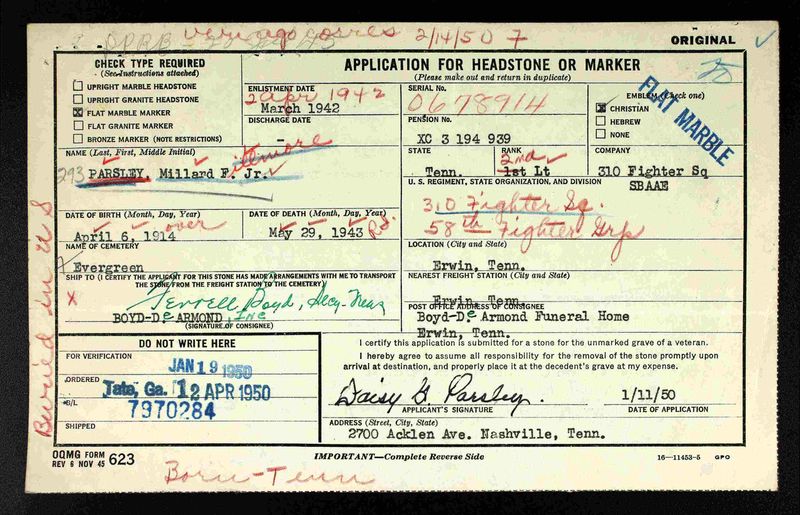 2/14/50 7
ORIGINAL
CHECK TYPE REQUIRED
(See Instructions attached)
UPRIGHT MARBLE HEADSTONE
UPRIGHT GRANITE HEADSTONE
FLAT MARBLE MARKER
FLAT GRANITE MARKER
BRONZE MARKER (NOTE RESTRICTIONS)
APPLICATION FOR HEADSTONE OR MARKER
(Please make out and return in duplicate)
ENLISTMENT DATE
2 apr 1942
March 1942
DISCHARGE DATE
-
SERIAL No.
0678914
PENSION No.
XC 3 194 939
EMBLEM (Check one)
CHRISTIAN
HEBREW
NONE
FLAT MARBLE
NAME (Last, First, Middle Initial)
293 PARSLEY, Millard F. Jr.
illmore
STATE
Tenn.
RANK
2nd
1st Lt
COMPANY
310 Fighter Sq
SBAAE
U. S. REGIMENT, STATE ORGANIZATION, AND DIVISION
310 Fighter Sq.
58th Fighter Grp
DATE OF BIRTH (Month, Day, Year)
over
April 6, 1914
DATE OF DEATH (Month, Day, Year)
May 29, 1943
NAME OF CEMETERY
Evergreen
LOCATION (City and State)
Erwin, Tenn.
SHIP TO (I CERTIFY THE APPLICANT FOR THIS STONE HAS MADE ARRANGEMENTS WITH ME TO TRANSPORT
THE STONE FROM THE FREIGHT STATION TO THE CEMETERY)
NEAREST FREIGHT STATION (City and State)
Erwin, Tenn.
X
Terrell Boyd, Secy-Treas
BOYD-De ARMOND, Inc
(SIGNATURE OF CONSIGNEE)
POST OFFICE ADDRESS OF CONSIGNEE
Boyd-De Armond Funeral Home
Erwin, Tenn.
DO NOT WRITE HERE
FOR VERIFICATION
JAN 19 1950
ORDERED
Tate, Ga. 12 APR 1950
B/L
7970284
SHIPPED
I certify this application is submitted for a stone for the unmarked grave of a veteran.
I hereby agree to assume all responsibility for the removal of the stone promptly upon
arrival at destination, and properly place it at the decedent's grave at my expense.
Daisy G. Parsley. 1/11/50
APPLICANT'S SIGNATURE DATE OF APPLICATION
ADDRESS (Street, City, State)
2700 Acklen Ave. Nashville, Tenn.
OQMG FORM
REV 6 NOV 45 623
IMPORTANT—Complete Reverse Side
16—11453-5 GPO
Born-Tenn
Buried in U S